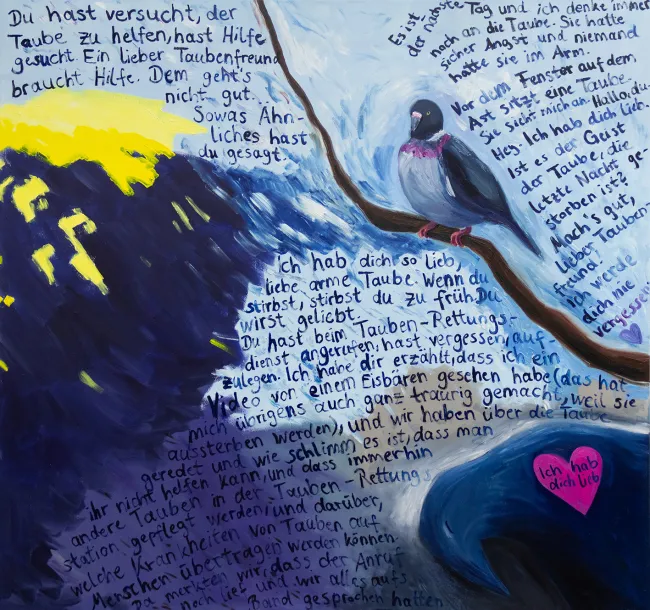 Du hast versucht, der
Taube zu helfen, hast Hilfe
gesucht. Ein lieber Taubenfreund
braucht Hilfe. Dem geht's
nicht gut.
Sowas Ähn-
liches hast
du gesagt.
Ich hab dich so lieb,
liebe arme Taube. Wenn du
stirbst, stirbst du zu früh. Du
wirst geliebt.
Du hast beim Tauben-Rettungs-
dienst angerufen, hast vergessen, auf-
zulegen. Ich habe dir erzählt, dass ich ein
Video von einem Eisbären gesehen habe (das hat
mich übrigens auch ganz traurig gemacht, weil sie
aussterben werden), und wir haben über die Taube
geredet und wie schlimm es ist, dass man
ihr nicht helfen kann, und dass immerhin
andere Tauben in der Tauben-Rettungs
station gepflegt werden, und darüber,
welche Krankheiten von Tauben auf
Menschen übertragen werden können.
Da merkten wir, dass der Anruf
noch lief und wir alles aufs
Band gesprochen hatten
Es ist der nächste Tag und ich denke immer
noch an die Taube. Sie hatte
sicher Angst und niemand
hatte sie im Arm.
Vor dem Fenster auf dem
Ast sitzt eine Taube.
Sie sieht mich an. Hallo, du.
Hey. Ich hab dich lieb.
Ist es der Geist
der Taube, die
letzte Nacht ge-
storben ist?
Mach's gut,
lieber Tauben-
freund!
Ich werde
dich nie
vergessen
Ich hab
dich lieb